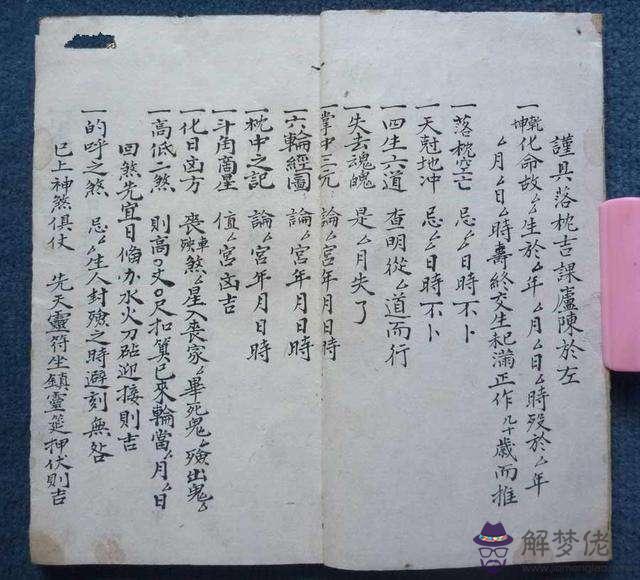 謹具落枕吉課臚陳於左
一乾坤化命故厶生於厶年厶月厶日厶時歿於厶年
厶月厶日厶時壽終交生祀滿正作几十歲而推
一落枕空亡 忌厶日時不卜
一天尅地冲 忌厶日時不卜
一四生六道 查明從厶道而行
一失去魂魄 是厶月失了
一掌中三元 論厶宮年月日時
一六輪經圖 論厶宮年月日時
一枕中之記 論厶宮年月日時
一斗角商星 值厶宮凶吉
一化日凶方 喪車殃煞厶星入喪家厶畢死鬼厶殮出鬼厶
一高低二煞 則高〇丈〇尺扣算已來輪當厶月厶日
回煞先宜日俻办水火刀砧迎接則吉
一的呼之煞 忌厶生人封殮之時避刻無咎
已上神煞俱仗 先天靈符坐鎮靈筵押伏則吉
解梦佬